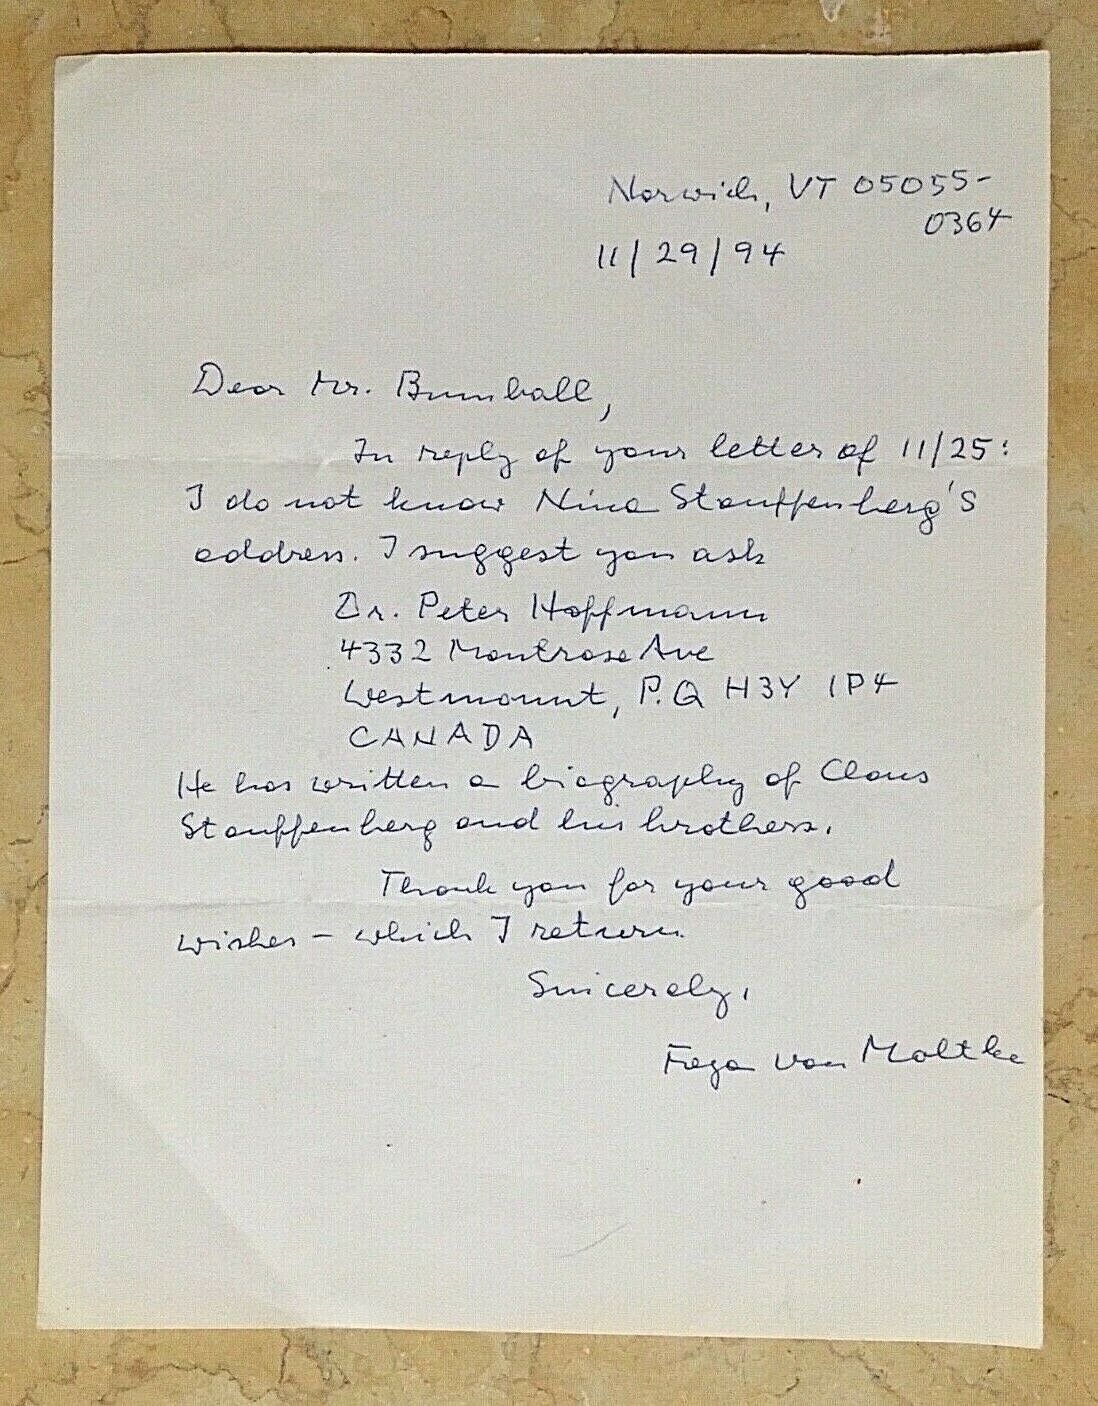 Norwich, VT 05055-
0364
11/29/94
Dear Mr. Bumball,
In reply of your letter of 11/25:
I do not know Nina Stauffenberg's
address. I suggest you ask
Dr. Peter Hoffmann
4332 Montrose Ave
Westmount, P.Q H3Y 1P4
CANADA
He has written a biography of Claus
Stauffenberg and his brothers.
Thank you for your good
wishes - which I return.
Sincerely,
Freya von Moltke